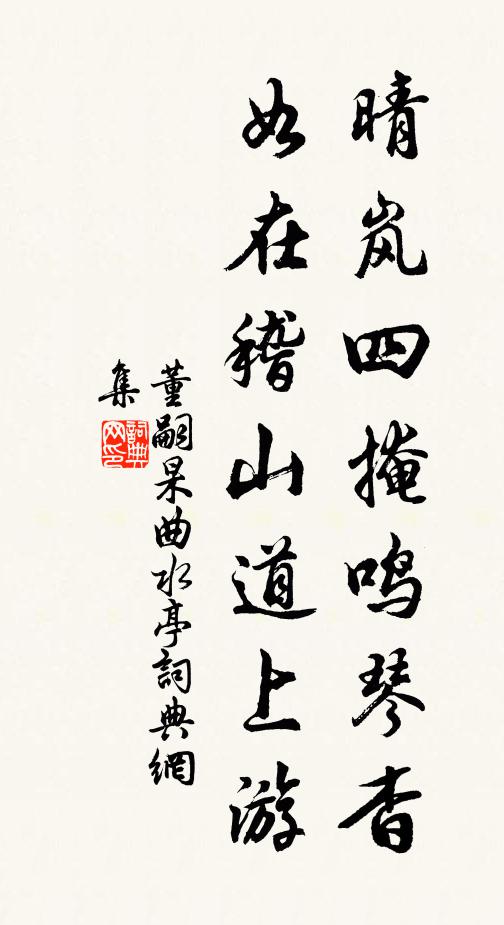 晴岚四掩鸣琴杳
如在稽山道上游
董嗣杲曲水亭詞典網
集
詞典
网印